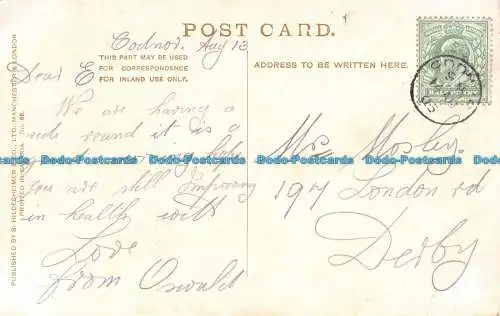 POST CARD.
THIS PART MAY BE USED
FOR CORRESPONDENCE
FOR INLAND USE ONLY.
ADDRESS TO BE WRITTEN HERE.
Codnor. Aug 13
Dear E
We are having a
ride round it is a
you are still Improving
in health with
Love
from Oswald
Mrs Mosley.
197 London rd
Derby
HALF PENNY
Dodo-Postcards Dodo-Postcards Dodo-Postcards Dodo-Postcards Dodo-Postcards
PUBLISHED BY S. HILDESHEIMER & CO., LTD. MANCHESTER & LONDON